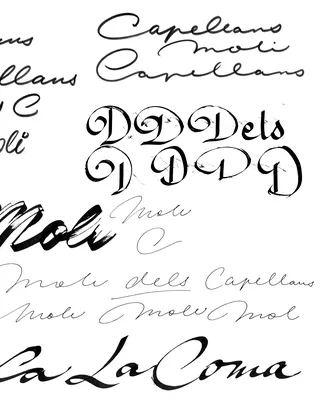 Capellans
Moli
llans Capellans
C
oli
D D D Dels
D D D D
Moli Moli
C
Moli dels Capellans
Moli Moli Mol
La La Coma